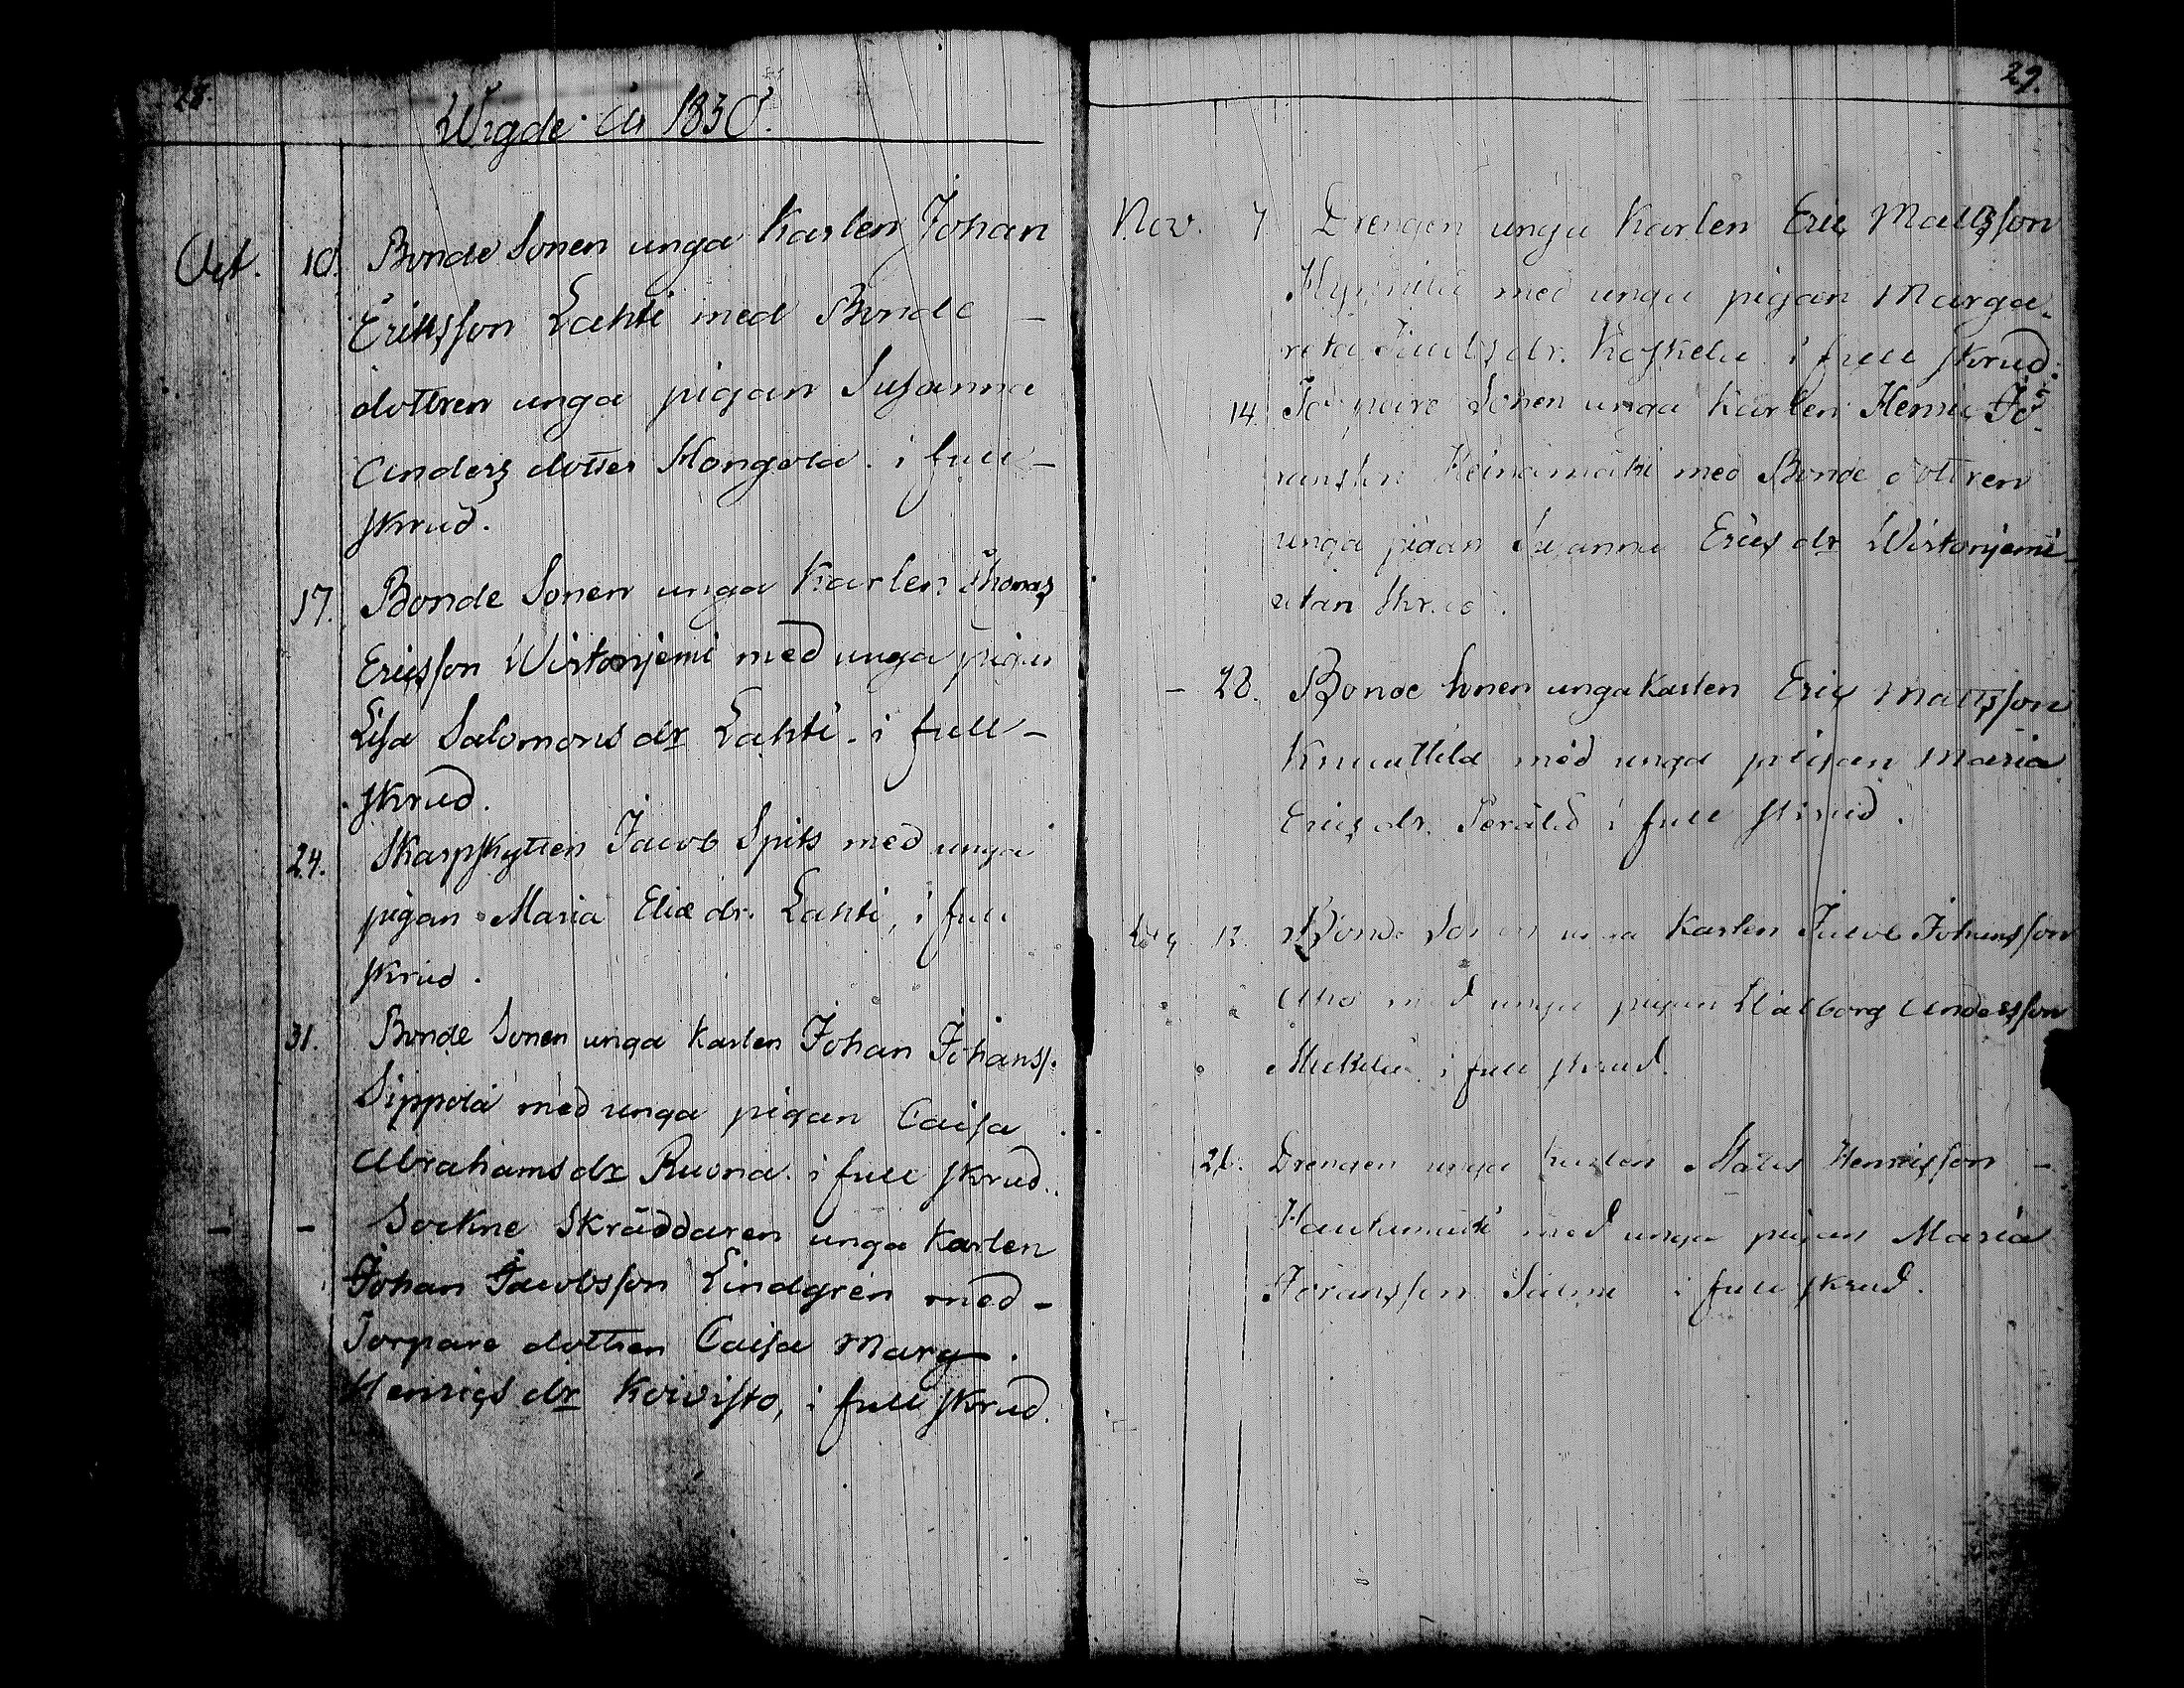 28.
Wigde år 1830.
Oct. 10. Bonde Sonen unga Karlen Johan
Ericsson Lahti med Bonde –
dottren unga pigan Susanna
Anders dotter Hongola. i full –
skrud.
17. Bonde Sonen unga Karlen Thomas
Ericsson Wirtaniemi med unga pigan
Lisa Salomons dr Lahti. i full –
skrud.
24. Skarpskytten Jacob Spits med unga
pigan Maria Eliæ dr. Lahti, i full
skrud.
31. Bonde Sonen unga Karlen Johan Johanss.
Sippola med unga pigan Caisa
Abrahams dr Ruona. i full skrud.
– – Sockne Skräddaren unga Karlen
Johan Jacobsson Lindgrén med –
Torpare dottren Caisa Marg.
Henrics dr Koivisto, i full skrud.
29.
Nov. 7 Drengen unga Karlen Eric Mattsson
med unga pigan Marga-
reta Jacobs dr. Koskela i full skrud.
14. Torpare Sonen unga Karlen Henric Jö-
ransson Heinämäki med Bonde dottren
unga pigan Susanna Erics dr Wirtaniemi –
utan skrud.
– 28. Bonde Sonen unga Karlen Eric Mattsson
Knuuttila med unga pigan Maria
Erics dr. Perälä i full skrud.
Bonde Sonen unga Karlen Jacob Johansson
Aho med unga pigan Walborg Andersson
i full skrud.
26. Drengen unga Karlen Matts Henricsson –
Hautamäki med unga pigan Maria
Göransson i full skrud.